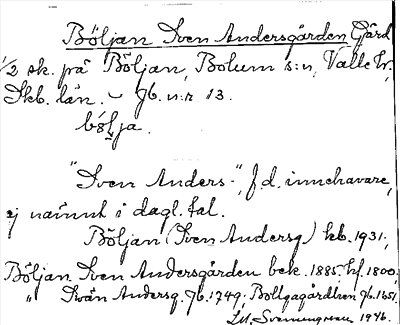 Böljan Sven Andersgården Gård
1/2 sk. på Böljan, Bolum s:n, Valle hr,
Skb. län. – Jb. n:r 13.
bö́lja.
"Sven Anders-", f.d. innehavare,
ej nämnt i dagl. tal.
Böljan (Sven Andersg.) kb. 1931;
Böljan Sven Andersgården bek. 1885; hf. 1800;
" Swän Andersg. Jb. 1749; Jb. 1651.
1946.